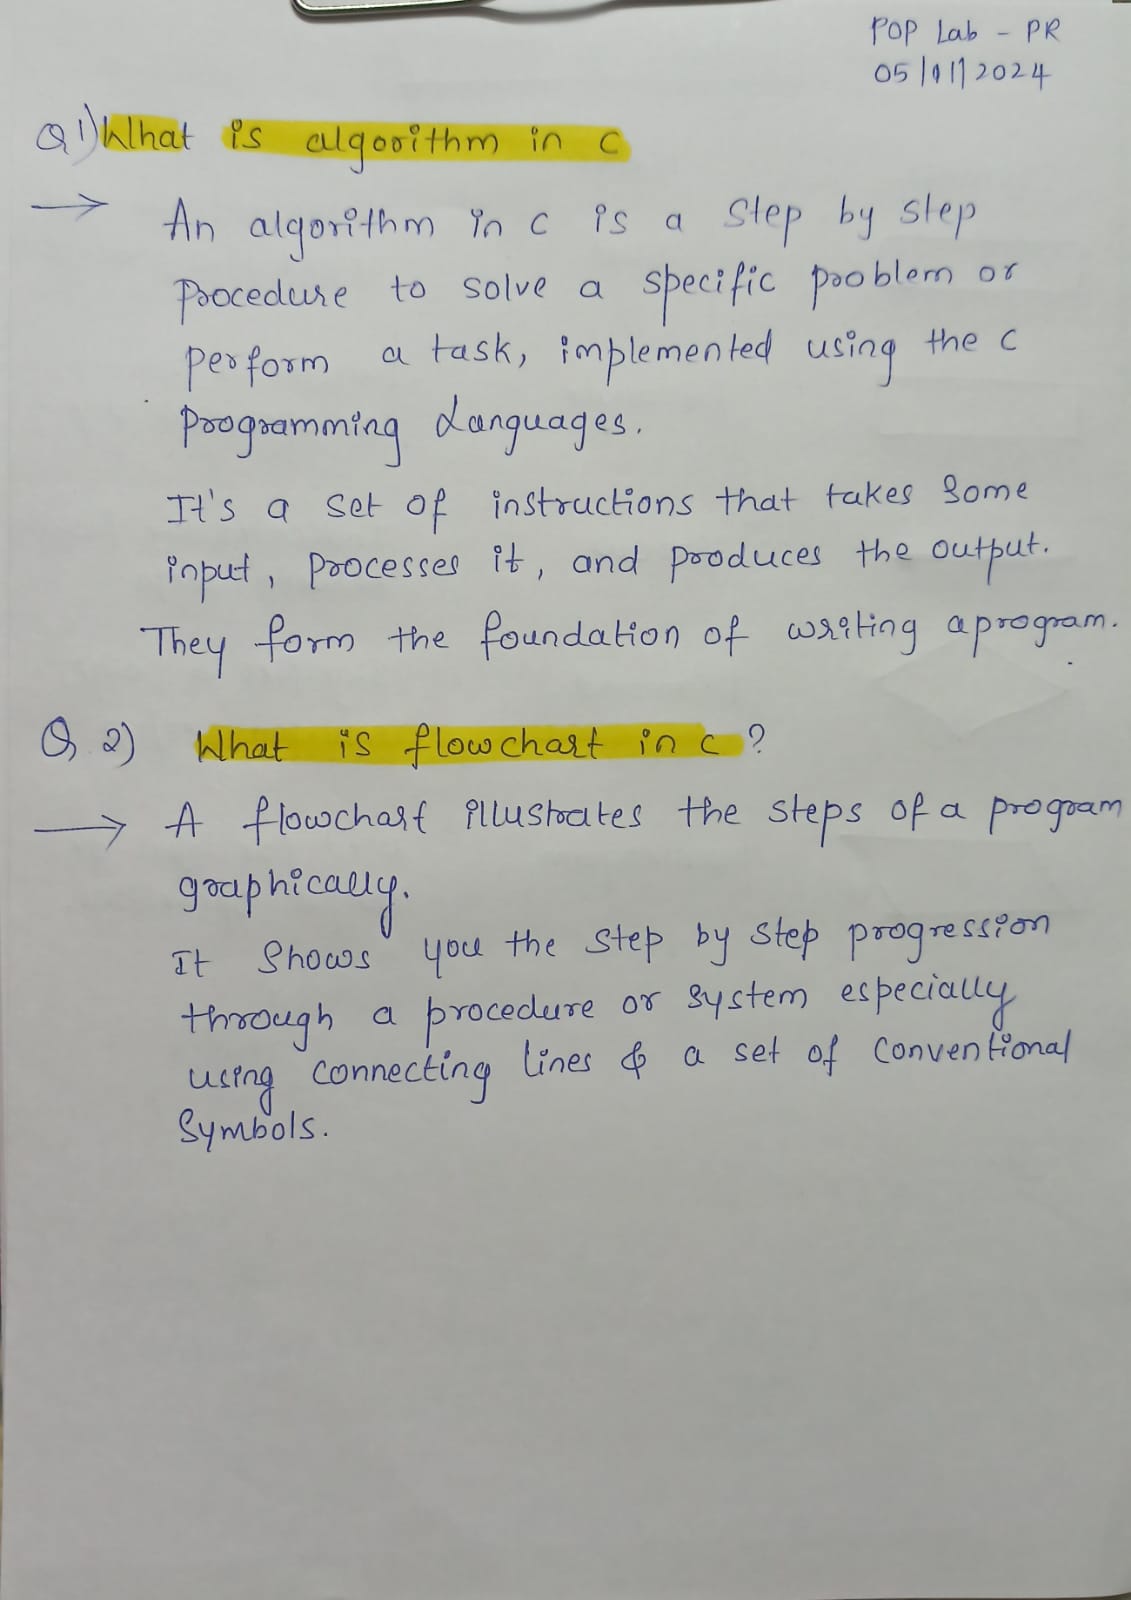 POP Lab - PR
05/11/2024
Q 1) What is algorithm in c
→ An algorithm in c is a step by step
Procedure to solve a specific problem or
perform a task, implemented using the c
Programming Languages.
It's a set of instructions that takes some
input, processes it, and produces the output.
They form the foundation of writing a program.
Q. 2) What is flowchart in c ?
→ A flowchart illustrates the steps of a program
graphically.
It shows you the step by step progression
through a procedure or system especially
using connecting lines & a set of conventional
symbols.